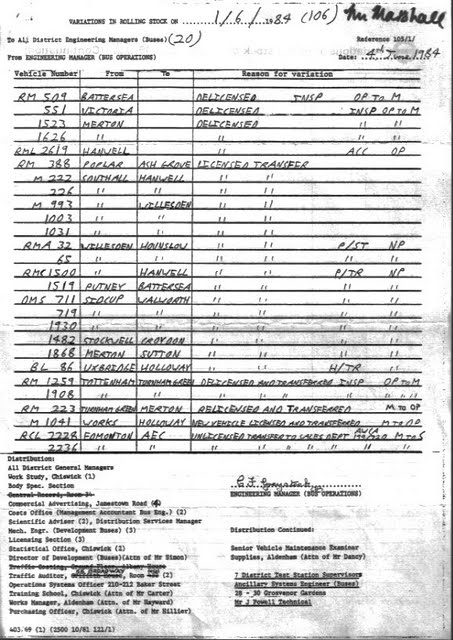 VARIATIONS IN ROLLING STOCK ON 1/6/1984 (106) Mr Marshall
To All District Engineering Managers (Buses) (20) Reference 105/1/
From ENGINEERING MANAGER (BUS OPERATIONS) Date: 4th 1984
Vehicle Number From To Reason for variation
RM 509 BATTERSEA DELICENSED INSP OP TO M
551 VICTORIA DELICENSED INSP OP TO M
1523 MERTON DELICENSED " "
1626 " " "
RML 2619 HANWELL ACC OP
RM 388 POPLAR ASH GROVE LICENSED TRANSFER
M 222 SOUTHALL HANWELL " "
226 " " " "
M 993 " WILLESDEN " "
1003 " " " "
1031 " " " "
RMA 32 WILLESDEN HOUNSLOW " " P/ST NP
65 " " " " " "
RMC 1500 " HANWELL " " P/TR NP
1519 PUTNEY BATTERSEA " " " "
DMS 711 SIDCUP WALWORTH " " " "
719 " " " " " "
1930 " " " " " "
1482 STOCKWELL CROYDON " " " "
1868 MERTON SUTTON " " " "
BL 86 UXBRIDGE HOLLOWAY " " H/TR "
RM 1259 TOTTENHAM TURNHAM GREEN DELICENSED AND TRANSFERRED INSP OP TO M
1908 " " " " " "
RM 223 TURNHAM GREEN MERTON RELICENSED AND TRANSFERRED M TO OP
M 1041 WORKS HOLLOWAY NEW VEHICLE LICENSED AND TRANSFERRED M TO OP
RCL 2228 EDMONTON AEC UNLICENSED TRANSFER TO SALES DEPT M TO S
2236 " " " "
Distribution:
All District General Managers
Work Study, Chiswick (1)
Body Spec. Section
Central Record, Room 3
ENGINEERING MANAGER (BUS OPERATIONS)
Commercial Advertising, Jamestown Road
Costs Office (Management Accountant Bus Eng.) (2)
Scientific Adviser (2), Distribution Services Manager
Mech. Engr. (Development Buses) (3)
Distribution Continued:
Licensing Section (3)
Statistical Office, Chiswick (2)
Senior Vehicle Maintenance Examiner
Director of Development (Buses)(Attn of Mr Simon)
Supplies, Aldenham (Attn of Mr Dancy)
Traffic Costing, Ground Floor, Albany House
55 BROADWAY
Traffic Auditor, Griffith House, Room (2)
7 District Test Station Supervisors
Operations Systems Officer 210-212 Baker Street
Ancillary Systems Engineer (Buses)
Training School, Chiswick (Attn of Mr Carter)
28 - 30 Grosvenor Gardens
Works Manager, Aldenham (Attn of Mr Hayward)
Mr J Powell Technical
Purchasing Officer, Chiswick (Attn of Mr Hillier)
403.49 (1) (2500 10/81 121/1)